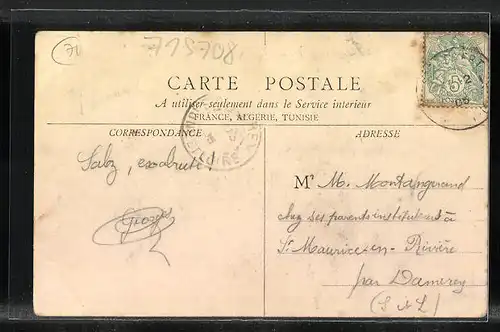 71
E15708
CARTE POSTALE
A utiliser seulement dans le Service interieur
FRANCE, ALGERIE, TUNISIE
CORRESPONDANCE
ADRESSE
Georges
Mr M. Montangerand
chez ses parents instituteur à
St Maurice-en-Rivière
par Damerey
(S & L)
5c